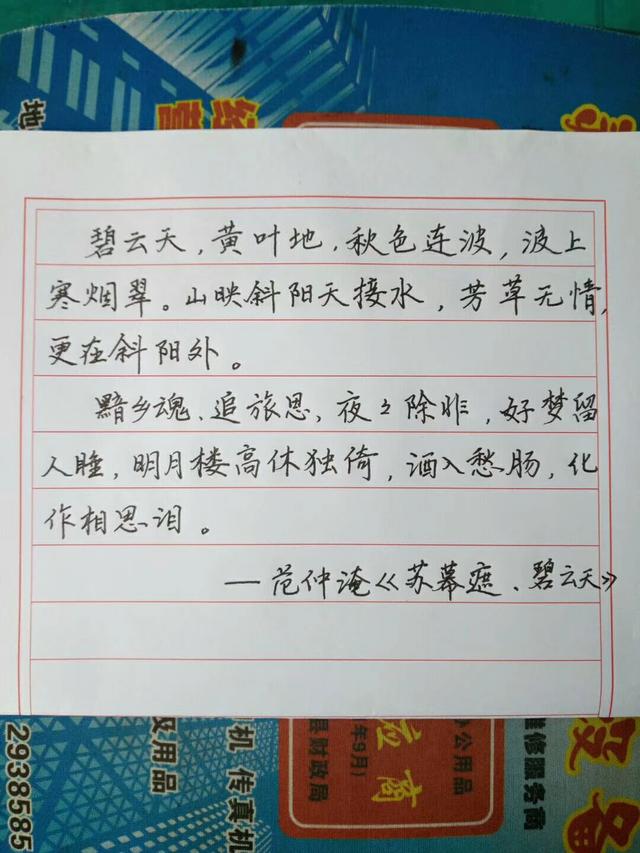 碧云天，黄叶地，秋色连波，波上
寒烟翠。山映斜阳天接水，芳草无情，
更在斜阳外。
黯乡魂、追旅思，夜々除非，好梦留
人睡，明月楼高休独倚，酒入愁肠，化
作相思泪。
—范仲淹《苏幕遮、碧云天》
办公用品
维修服务商
设备
年9月)
应商
县财政局
机 传真机
及用品
2938585